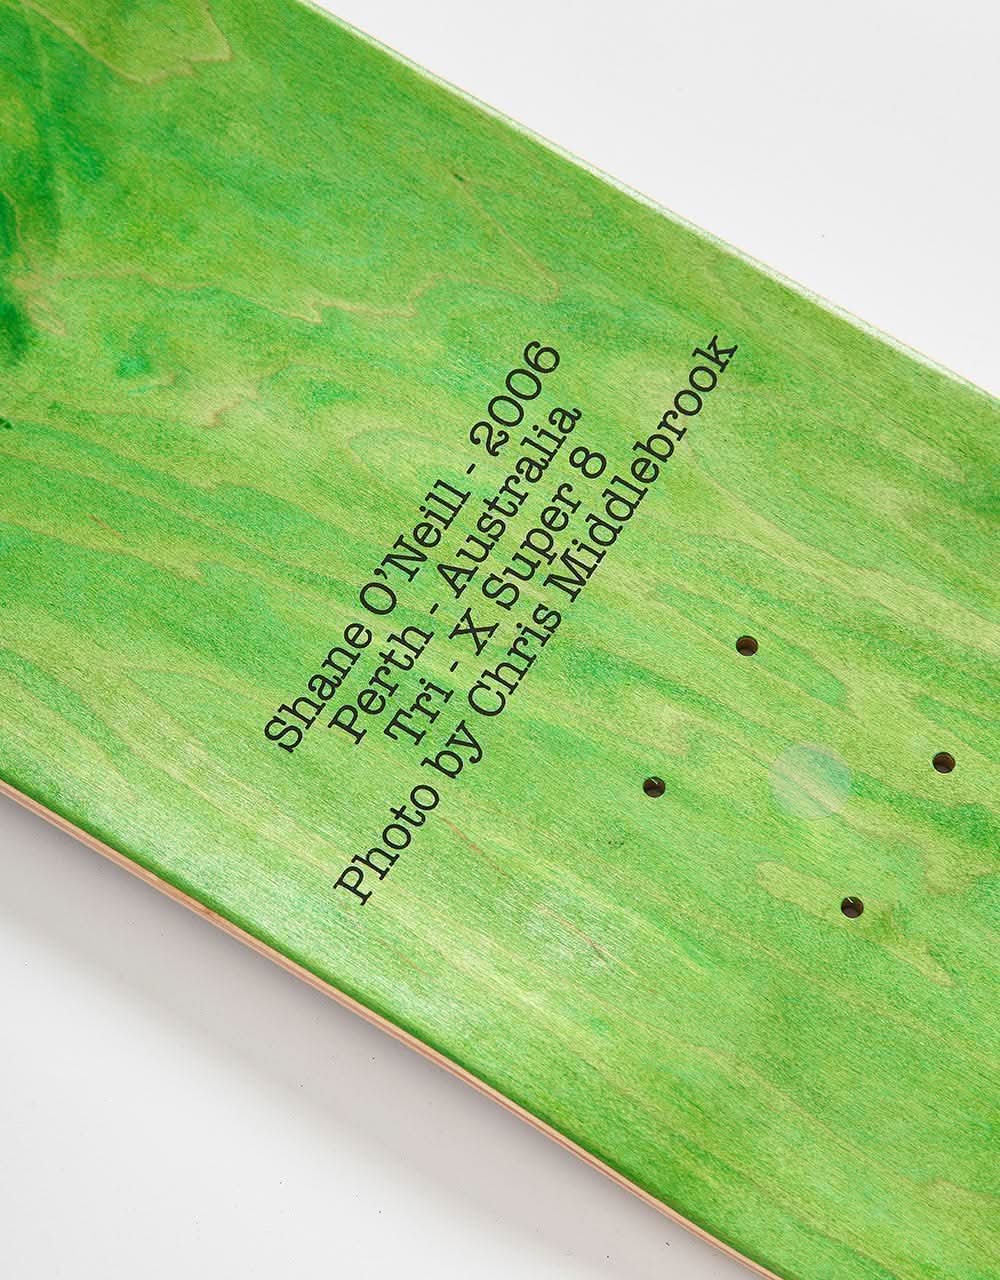 Shane O’Neill - 2006
Perth - Australia
Tri - X Super 8
Photo by Chris Middlebrook